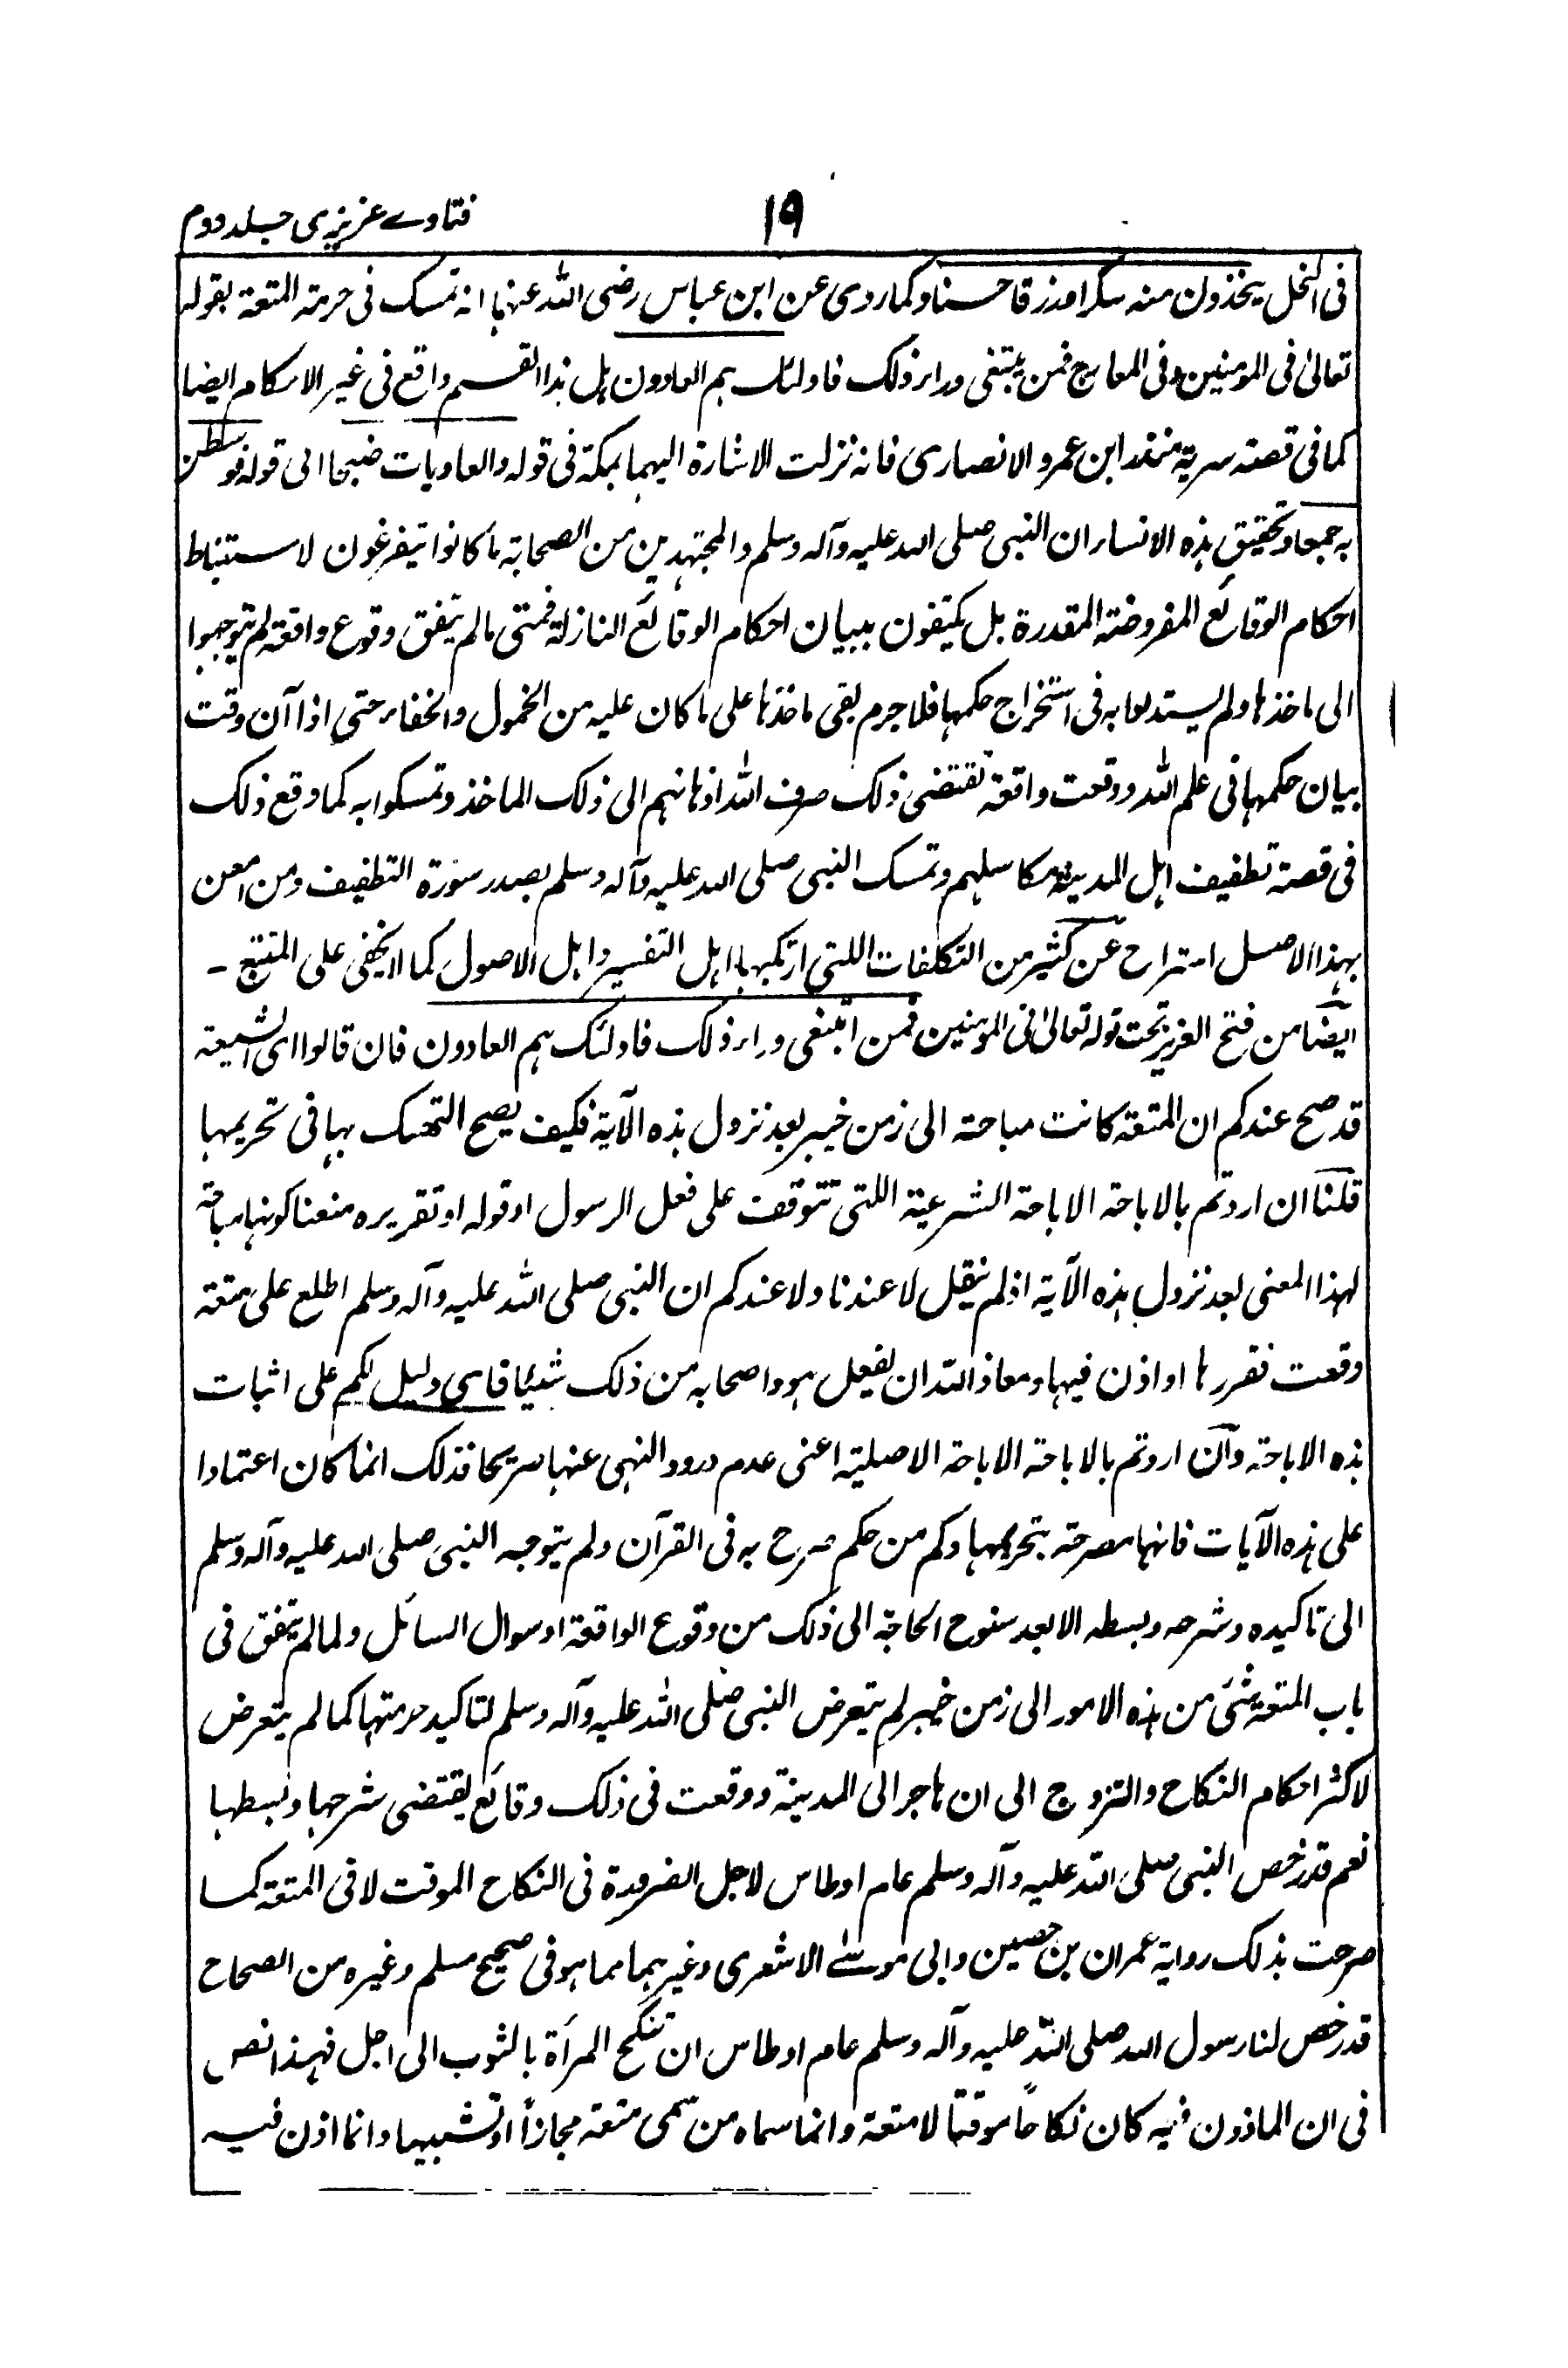 فتاوے عزیزی جلد دوم
۱۹
فی النحل یتخذون منه سکرا ورزقا حسنا وکما روی عن ابن عباس رضی الله عنهما انه تمسک فی حرمة المتعة بقوله
تعالیٰ فی المومنین وفی المعارج فمن یبتغی وراء ذلک فاولئک هم العادون بل هذا القسم واقع فی غیر الاحکام ایضا
کما فی قصة سریة منذر ابن عمرو الانصاری فانه نزلت الاشارة الیهما بمکة فی قوله والعادیات ضبحا الی قوله فوسطن
به جمعا وتحقیق هذه الانساء ان النبی صلی الله علیه وآله وسلم والمجتهدین من الصحابة ما کانوا یتفرغون لاستنباط
احکام الوقائع المفروضة المقدرة بل یکتفون ببیان احکام الوقائع النازلة فمتی مالم یتفق وقوع واقعة لم یتوجهوا
الی ماخذها ولم یستدلوا به فی استخراج حکمها فلا جرم بقی ماخذها علی ما کان علیه من الخمول والخفاء حتی اذا آن وقت
بیان حکمها فی علم الله ووقعت واقعة تقتضی ذلک صرف الله اذهانهم الی ذلک الماخذ وتمسکوا به کما وقع ذلک
فی قصة تطفیف اهل المدینة مکاسلهم وتمسک النبی صلی الله علیه وآله وسلم بصدر سورة التطفیف ومن امعن
بهذا الاصل استراح عن کثیر من التکلفات اللتی ارتکبها اهل التفسیر واهل الاصول کما لا یخفی علی المتتبع -
ایضا من فتح العزیز تحت قوله تعالیٰ فی المومنین فمن ابتغی وراء ذلک فاولئک هم العادون فان قالوا ای الشیعة
قد صح عندکم ان المتعة کانت مباحة الی زمن خیبر بعد نزول هذه الآیة فکیف یصح التمسک بها فی تحریمها
قلنا ان اردتم بالاباحة الاباحة الشرعیة اللتی تتوقف علی فعل الرسول او قوله او تقریره منعنا کونها مباحة
لهذا المعنی بعد نزول هذه الآیة اذ لم ینقل لا عندنا ولا عندکم ان النبی صلی الله علیه وآله وسلم اطلع علی متعة
وقعت فقررها او اذن فیها ومعاذ الله ان یفعل هو واصحابه من ذلک شیئا فای دلیل لکم علی اثبات
هذه الاباحة وان اردتم بالاباحة الاباحة الاصلیة اعنی عدم ورود النهی عنها صریحا فذلک انما کان اعتمادا
علی هذه الآیات فانها مصرحة بتحریمها وکم من حکم صرح به فی القرآن ولم یتوجه النبی صلی الله علیه وآله وسلم
الی تاکیده وشرحه وبسطه الا بعد سنوح الحاجة الی ذلک من وقوع الواقعة او سوال السائل ولما لم یتفق فی
باب المتعة شئ من هذه الامور الی زمن خیبر لم یتعرض النبی صلی الله علیه وآله وسلم لتاکید حرمتها کما لم یتعرض
لاکثر احکام النکاح والتزوج الی ان هاجر الی المدینة ووقعت فی ذلک وقائع یقتضی شرحها وبسطها
نعم قد رخص النبی صلی الله علیه وآله وسلم عام اوطاس لاجل الضرورة فی النکاح الموقت لا فی المتعة کما
صرحت بذلک روایة عمران بن حصین وابی موسیٰ الاشعری وغیرهما مما هو فی صحیح مسلم وغیره من الصحاح
قد رخص لنا رسول الله صلی الله علیه وآله وسلم عام اوطاس ان تنکح المرأة بالثوب الی اجل فهذا نص
فی ان الماذون فیه کان نکاحاً موقتا لا متعة وانما سماه من سمی متعة مجازاً او تشبیها وانما اذن فیه